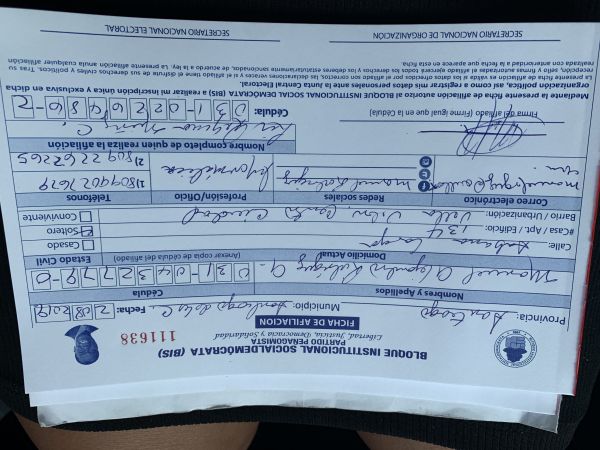 BLOQUE INSTITUCIONAL SOCIALDEMÓCRATA (BIS)
PARTIDO PEÑAGOMISTA
Libertad, Justicia, Democracia y Solidaridad
111638
FICHA DE AFILIACIÓN
Provincia: Santiago Municipio: Santiago de los C. Fecha: 2 08 2019
Nombres y Apellidos Cédula
Manuel Alejandro Rodríguez 031-0432779-0
Domicilio Actual (Anexar copia de cédula del afiliado) Estado Civil
Calle: Sabana Larga
#casa / Apt. / Edificio: 134
Barrio Urbanización: Villa Centro Ciudad
Casado
Soltero
Conviviente
Correo electrónico Redes sociales Profesión/Oficio Teléfonos
1) 809
2) 809 2262265
Firma del afiliado (Firma igual que en la Cédula)
Nombre completo de quien realiza la afiliación
Cédula: 031-0226486-2
Mediante la presente ficha de afiliación autorizo al BLOQUE INSTITUCIONAL SOCIAL DEMÓCRATA (BIS) a realizar mi inscripción única y exclusiva en dicha
organización política, así como a registrar mis datos personales ante la Junta Central Electoral.
La presente ficha de afiliación es válida si los datos ofrecidos por el afiliado son correctos, las declaraciones veraces y si el afiliado tiene el disfrute de sus derechos civiles y políticos. Tras su
recepción, sello y firmas autorizadas el afiliado ejercerá todos los derechos y los deberes estatutariamente sancionados, de acuerdo a la ley. La presente afiliación anula cualquier afiliación
realizada con anterioridad a la fecha que aparece en esta ficha.
SECRETARIO NACIONAL DE ORGANIZACIÓN SECRETARIO NACIONAL ELECTORAL